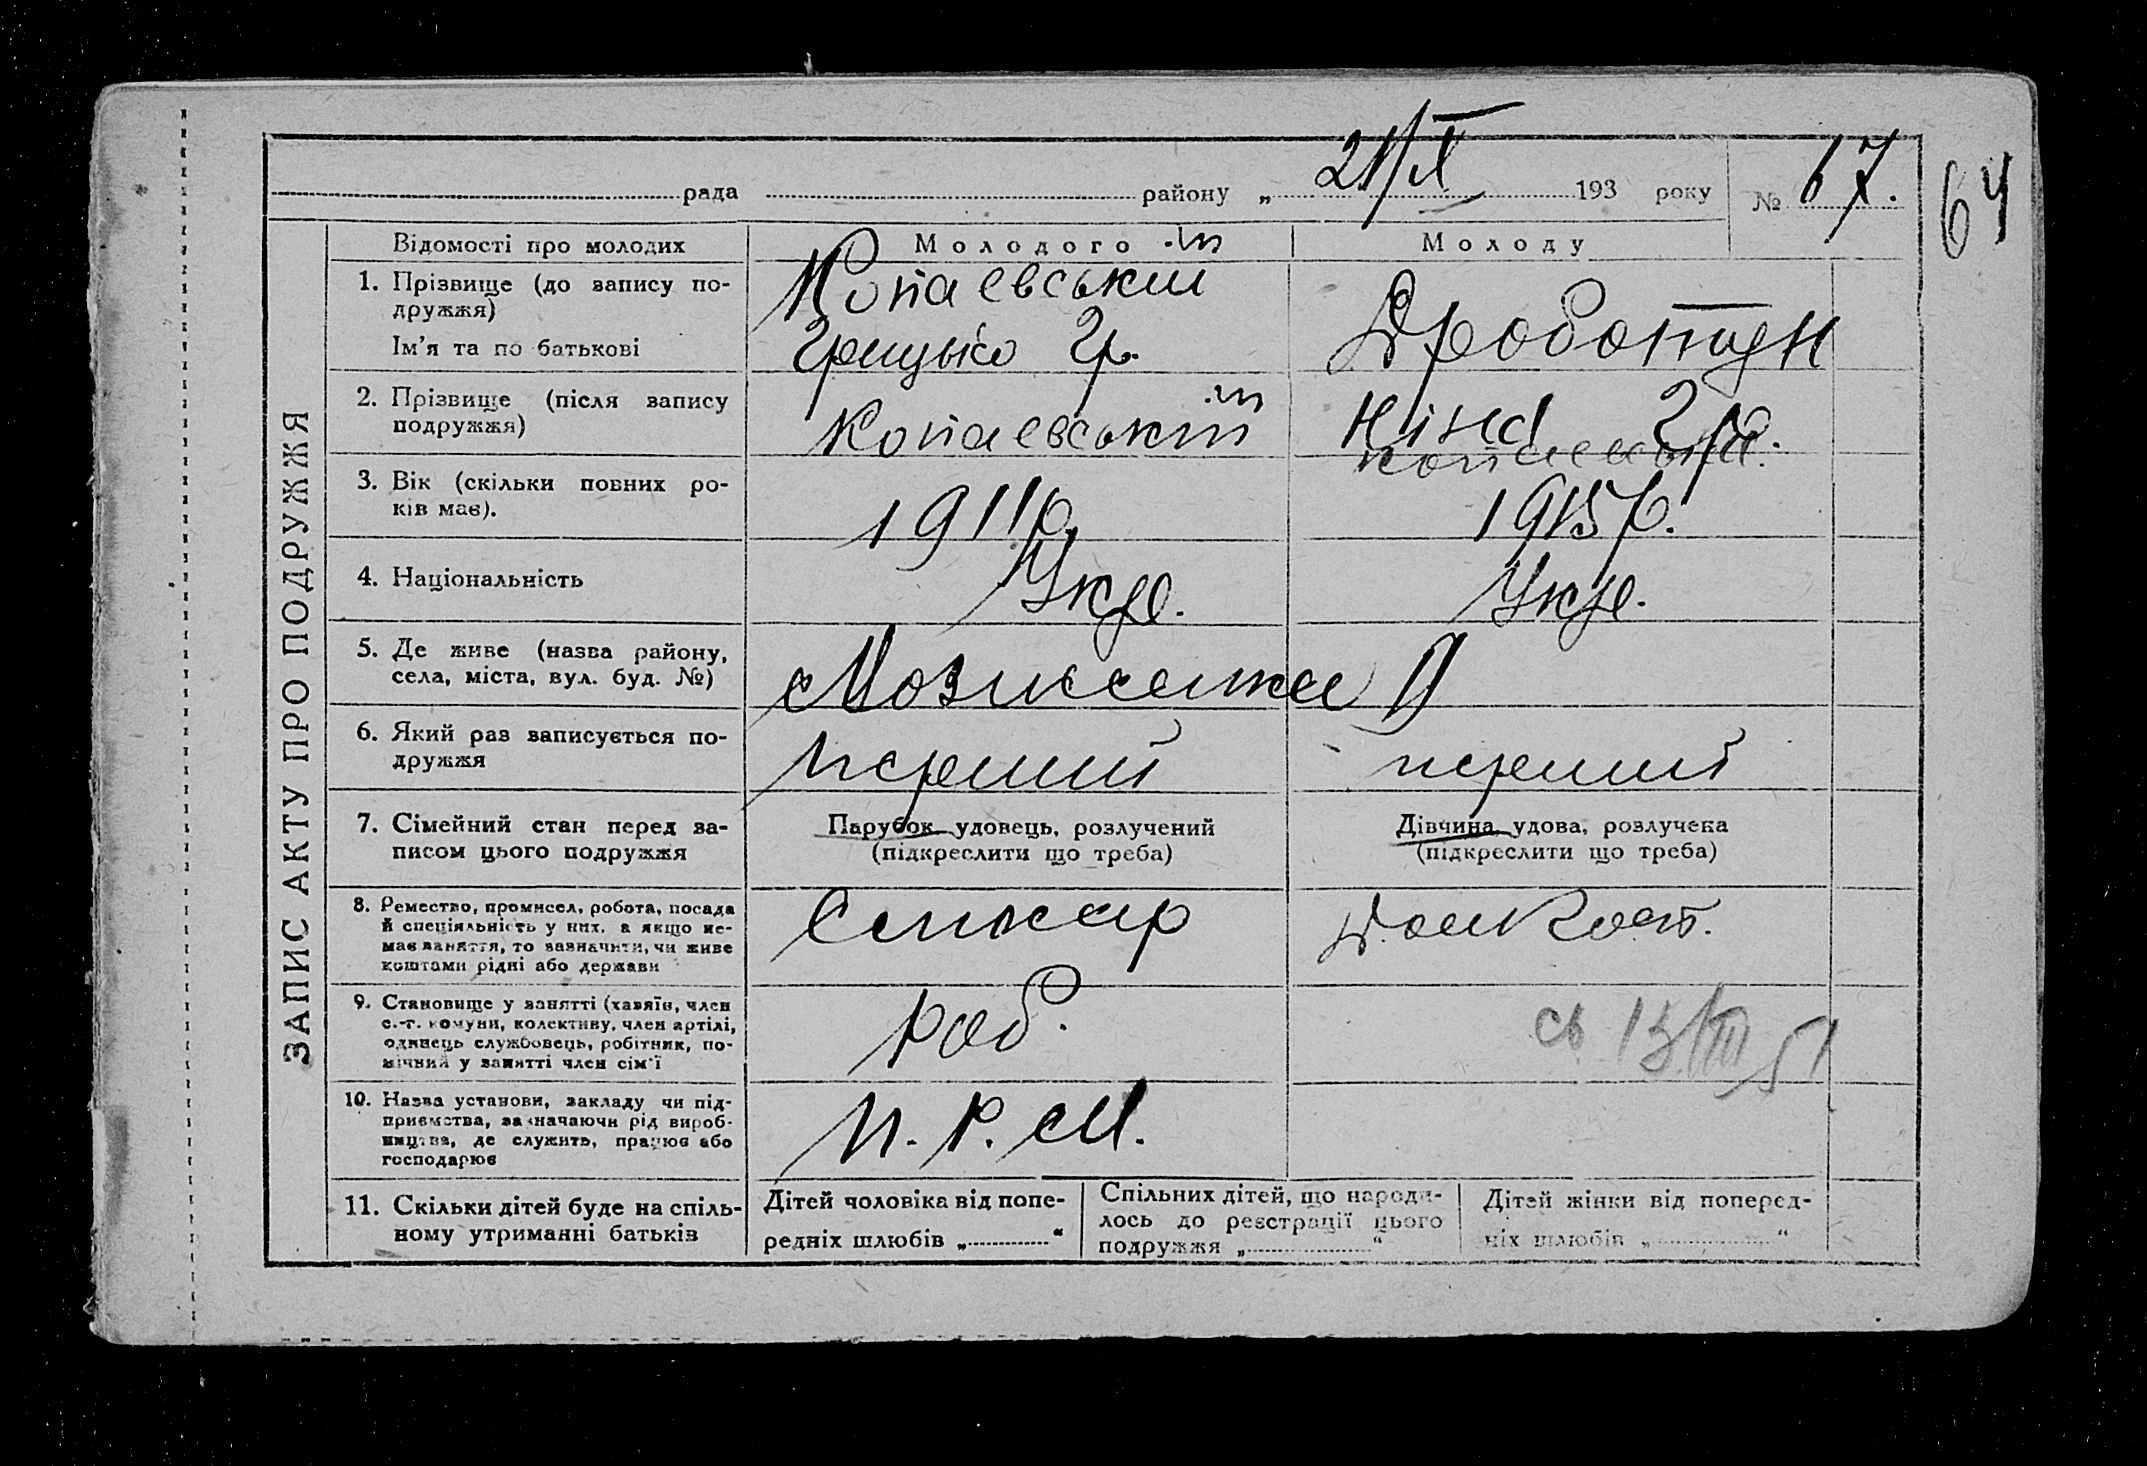 рада району „ 21/IX 193 року № 67.
64
ЗАПИС АКТУ ПРО ПОДРУЖЖЯ
Відомості про молодих
Молодого
Молоду
1. Прізвище (до запису по-
дружжя)
Ім'я та по батькові
Копаевський
Грицько Гр.
Дроботун
Ніна Гр.
2. Прізвище (після запису
подружжя)
Копаевській
Копаевська.
3. Вік (скільки повних ро-
ків має).
1911р.
1915р.
4. Національність
Укр.
Укр.
5. Де живе (назва району,
села, міста, вул. буд. №)
6. Який раз записується по-
дружжя
перший
перший
7. Сімейний стан перед за-
писом цього подружжя
Парубок, удовець, розлучений
(підкреслити що треба)
Дівчина, удова, розлучена
(підкреслити що треба)
8. Ремество, промисел, робота, посада
й спеціяльність у них, а якщо не-
має заняття, то зазначити, чи живе
коштами рідні або держави
9. Становище у занятті (хазяїн, член
с.-г. комуни, колективу, член артілі,
одинець службовець, робітник, по-
мічний у занятті член сім'ї
роб.
св 13/III 51
10. Назва установи, закладу чи під-
приємства, зазначаючи рід вироб-
ництва, де служить, працює або
господарює
П. Р. М.
11. Скільки дітей буде на спіль-
ному утриманні батьків
Дітей чоловіка від попе-
редніх шлюбів „ “
Спільних дітей, що народи-
лось до реєстрації цього
подружжя „ “
Дітей жінки від поперед-
ніх шлюбів „ “